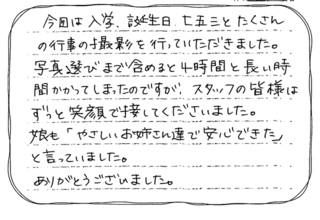 今回は入学、誕生日、七五三とたくさん
の行事の撮影を行っていただきました。
写真選びまで含めると4時間と長い時
間かかってしまったのですが、スタッフの皆様は
ずっと笑顔で接してくださいました。
娘も「やさしいお姉さん達で安心できた」
と言っていました。
ありがとうございました。